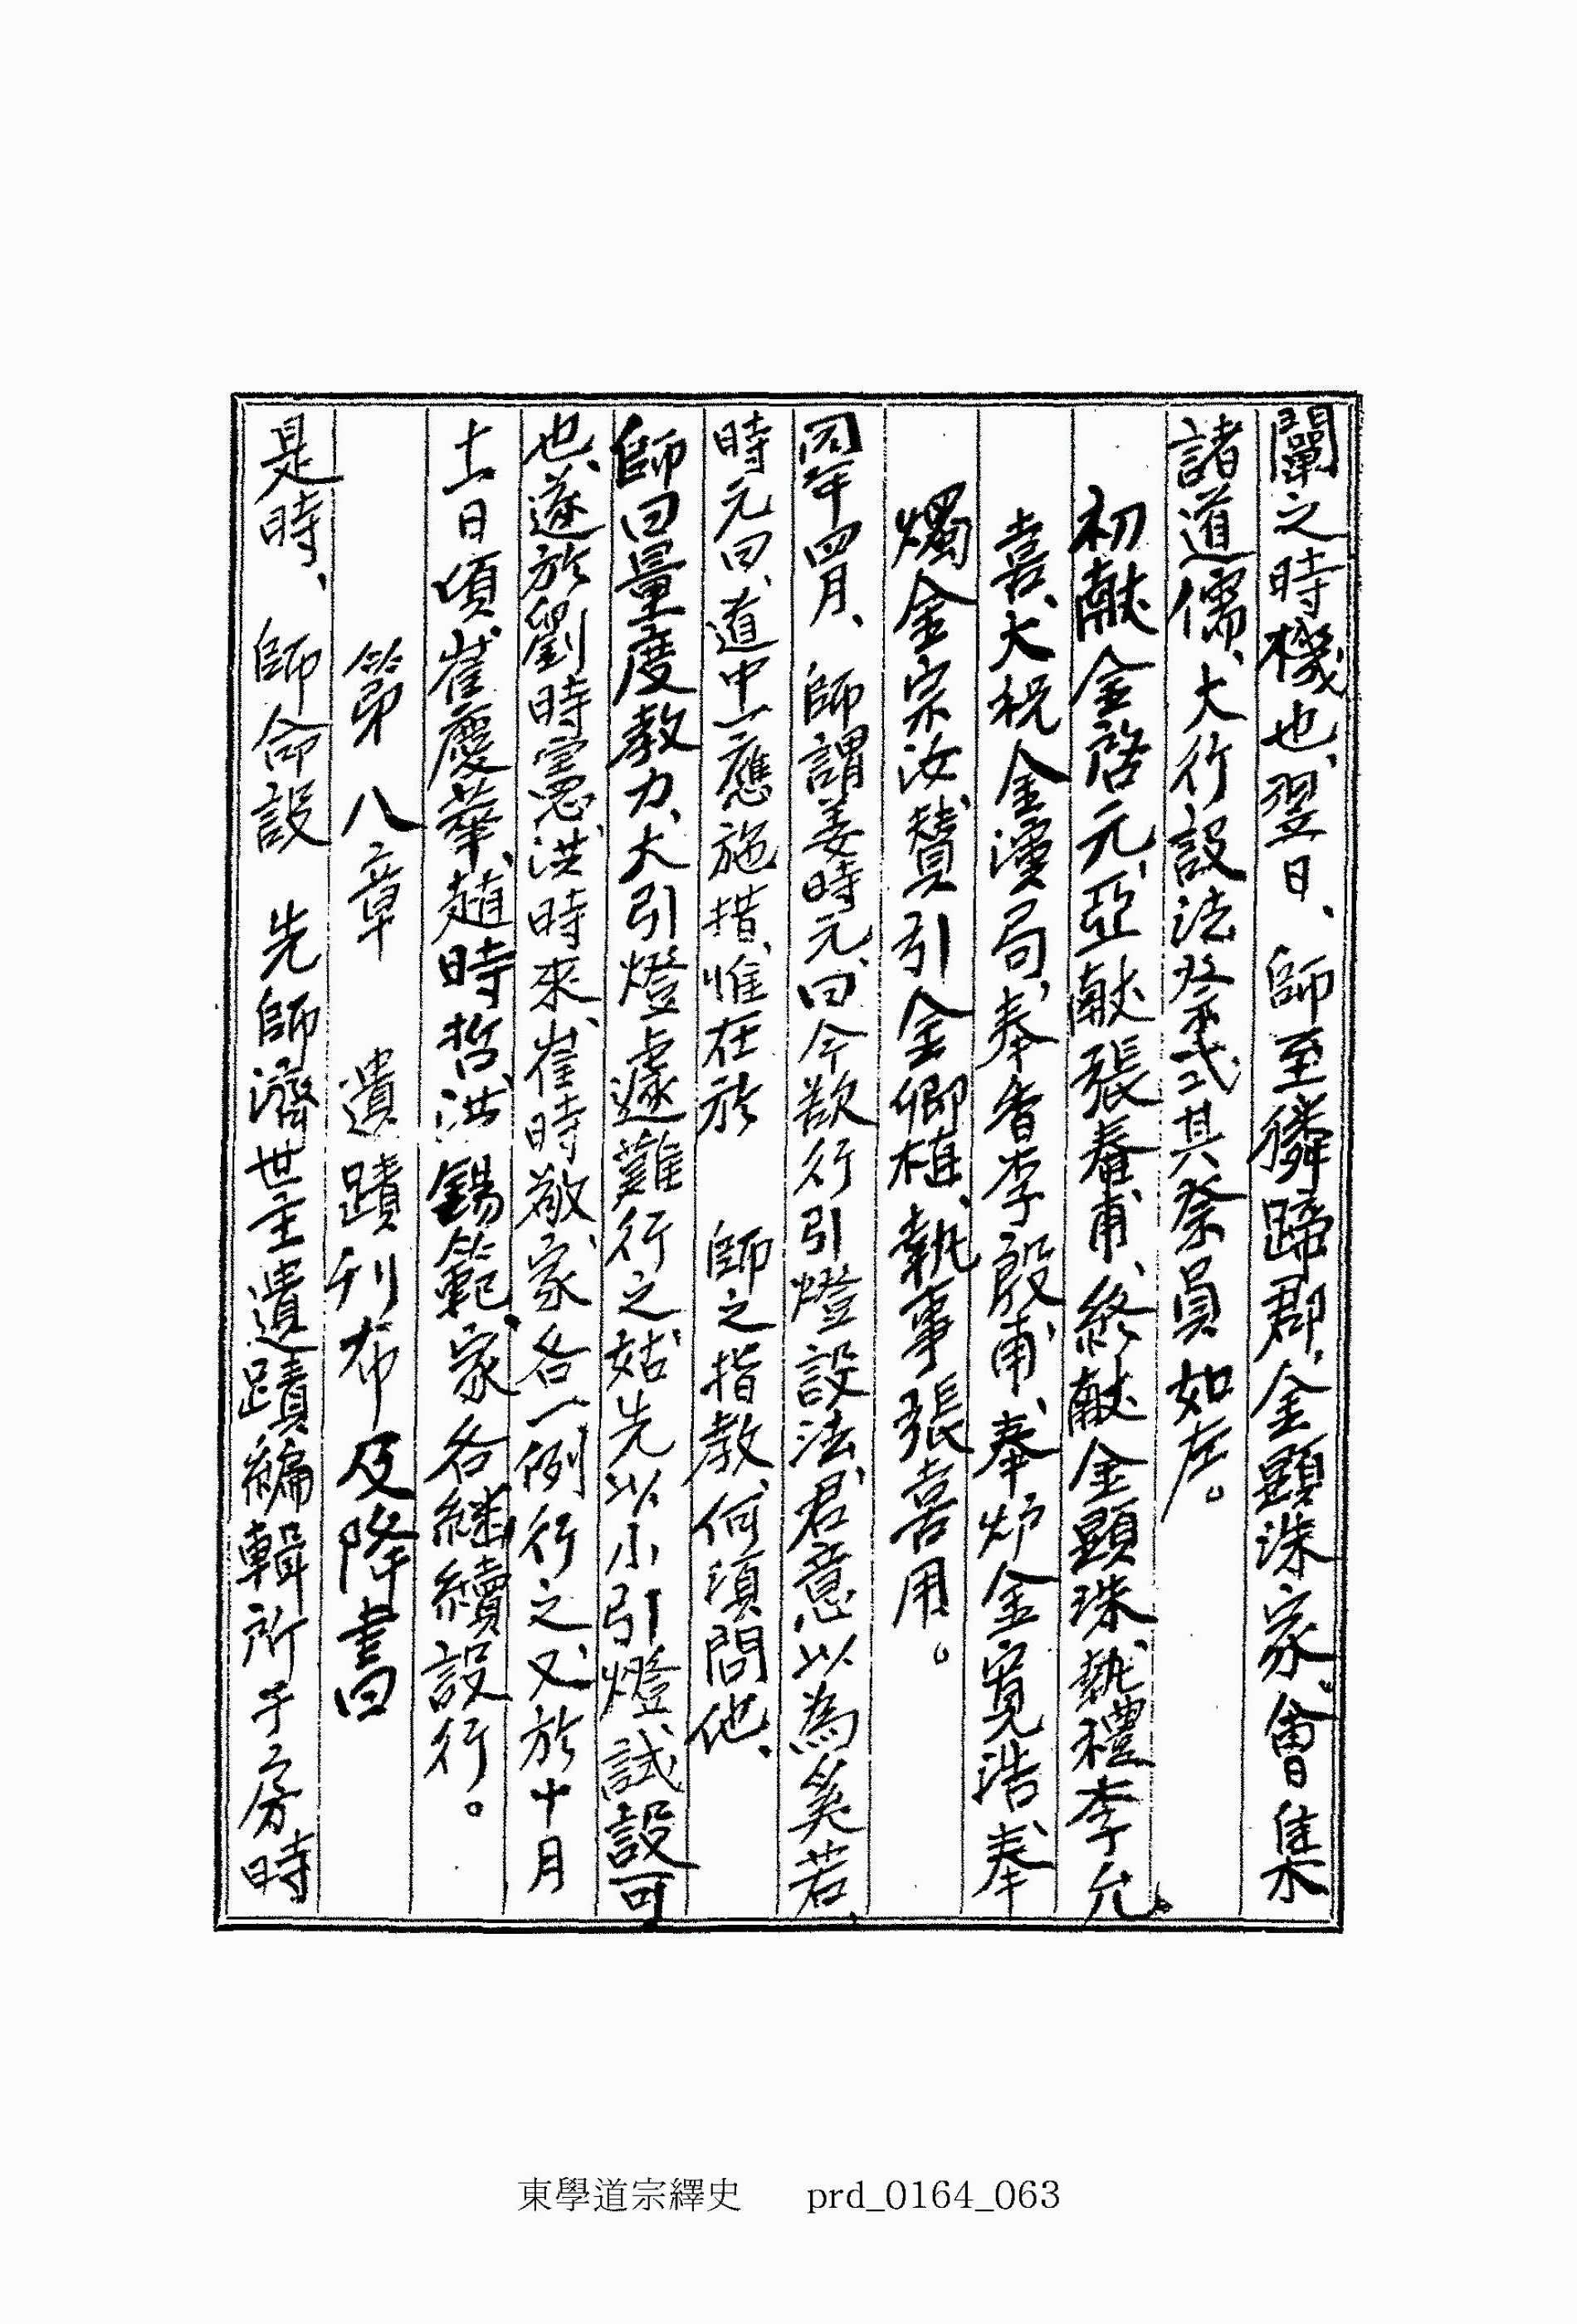 闡之時機也、翌日、 師至獜蹄郡、金顯洙家、會集
諸道儒、大行設法祭式其祭員如左。
初献金啓元、亞献張春甫、終献金顯珠、執禮李允
喜、大祝金演局、奉香李殷甫、奉炉金寬浩、奉
燭金宗汝、賛引金卿植、執事張喜用。
同年四月、 師謂姜時元、曰、今欲行引燈設法、君意以為奚若、
時元曰、道中一應施措、惟在於 師之指教、何須問他、
師曰量度教力、大引燈遽難行之、姑先以小引燈、試設可
也、遂於劉時憲、洪時來、崔時敬、家各一例行之、又於十月
十一日頃、崔慶華、趙時哲、洪錫範、家各継續設行。
第八章 遺蹟刊布及降書
是時、 師命設 先師濟世主遺蹟編輯所于房時
東學道宗繹史 prd_0164_063